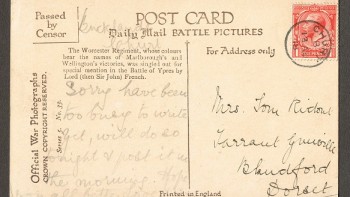 Passed
by
Censor
POST CARD
Daily Mail BATTLE PICTURES
The Worcester Regiment, whose colours
bear the names of Marlborough's and
Wellington's victories, was singled out for
special mention in the Battle of Ypres by
Lord (then Sir John) French.
For Address only
Official War Photographs
CROWN COPYRIGHT RESERVED.
Series 5. No. 38.
Sorry have been
too busy to write
yet, will do so
tonight & post it in
the morning. Hope
Mrs. Tom Ridout
Tarrant Gunville
Blandford
Dorset
Printed in England